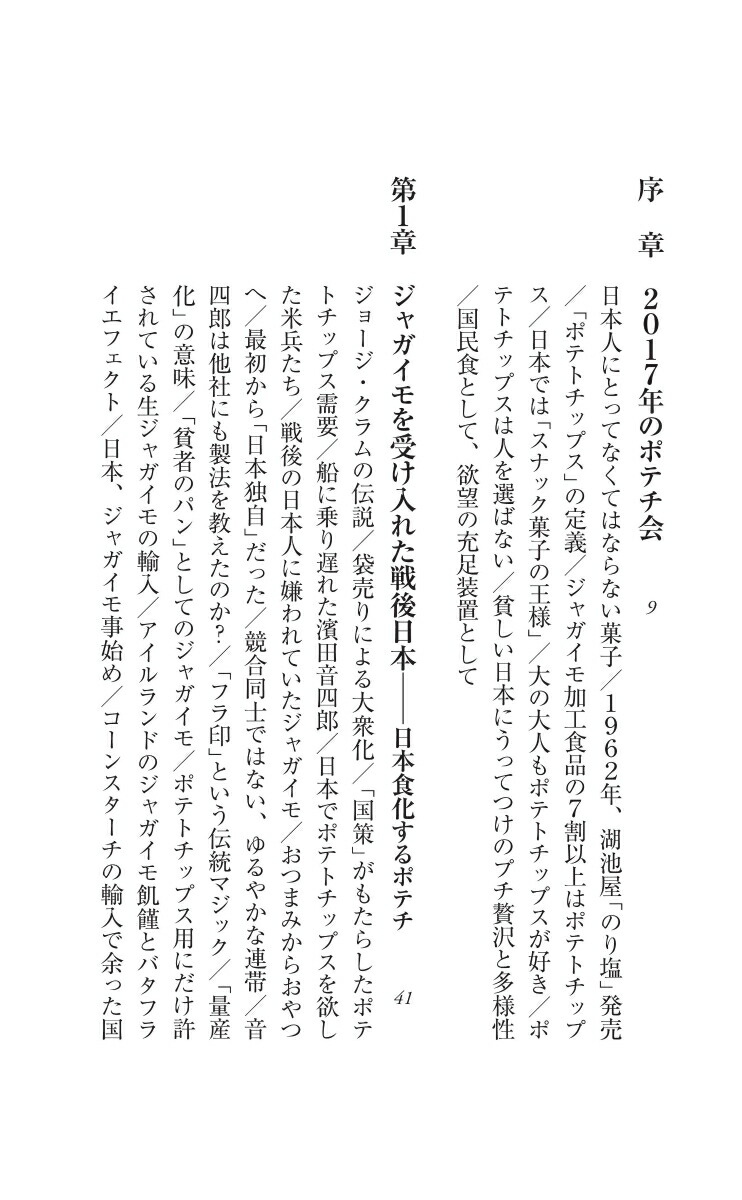 序　章　2017年のポテチ会　9
日本人にとってなくてはならない菓子／1962年、湖池屋「のり塩」発売
／「ポテトチップス」の定義／ジャガイモ加工食品の7割以上はポテトチップ
ス／日本では「スナック菓子の王様」／大の大人もポテトチップスが好き／ポ
テトチップスは人を選ばない／貧しい日本にうってつけのプチ贅沢と多様性
／国民食として、欲望の充足装置として
第1章　ジャガイモを受け入れた戦後日本――日本食化するポテチ　41
ジョージ・クラムの伝説／袋売りによる大衆化／「国策」がもたらしたポテ
トチップス需要／船に乗り遅れた濱田音四郎／日本でポテトチップスを欲し
た米兵たち／戦後の日本人に嫌われていたジャガイモ／おつまみからおやつ
へ／最初から「日本独自」だった／競合同士ではない、ゆるやかな連帯／音
四郎は他社にも製法を教えたのか？／「フラ印」という伝統マジック／「量産
化」の意味／「貧者のパン」としてのジャガイモ／ポテトチップス用にだけ許
されている生ジャガイモの輸入／アイルランドのジャガイモ飢饉とバタフラ
イエフェクト／日本、ジャガイモ事始め／コーンスターチの輸入で余った国